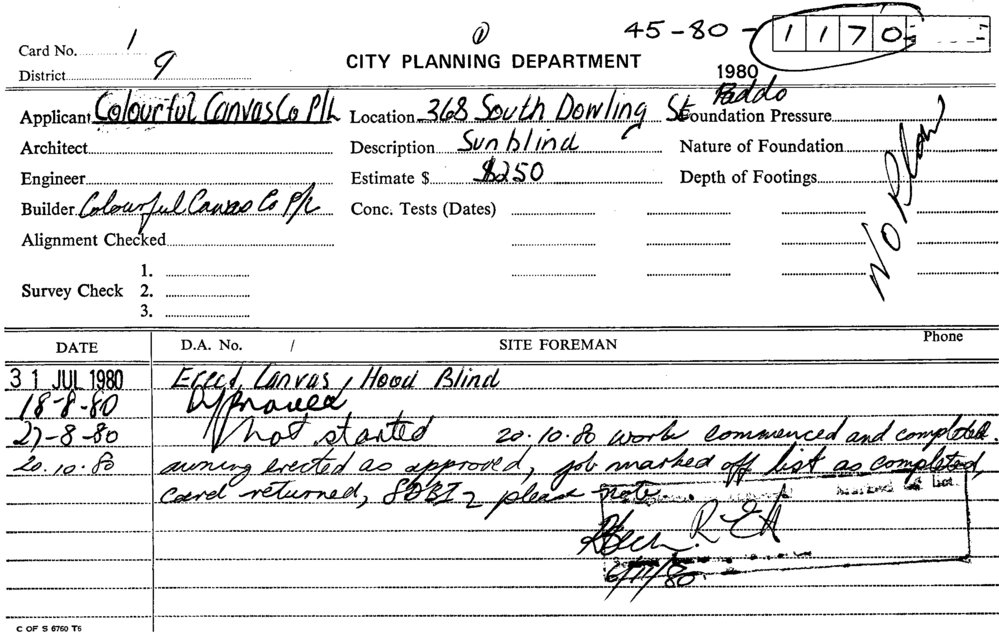 45-80-
1 1 7 0
Card No. 1
District 9
CITY PLANNING DEPARTMENT
1980
Applicant Colourful Canvas Co P/L Location 368 South Dowling St Paddo Foundation Pressure
Architect Description Sunblind Nature of Foundation
Engineer Estimate $ $250 Depth of Footings
Builder Colourful Canvas Co P/L Conc. Tests (Dates)
No Plan
Alignment Checked
1.
Survey Check 2.
3.
DATE D.A. No. / SITE FOREMAN Phone
31 JUL 1980 Erect Canvas Hood Blind
18-8-80 Approved
27-8-80 not started 20.10.80 work commenced and completed.
20.10.80 awning erected as approved, job marked off list as completed
card returned, please note.
marked off list
6/11/80
C OF S 6760 T6